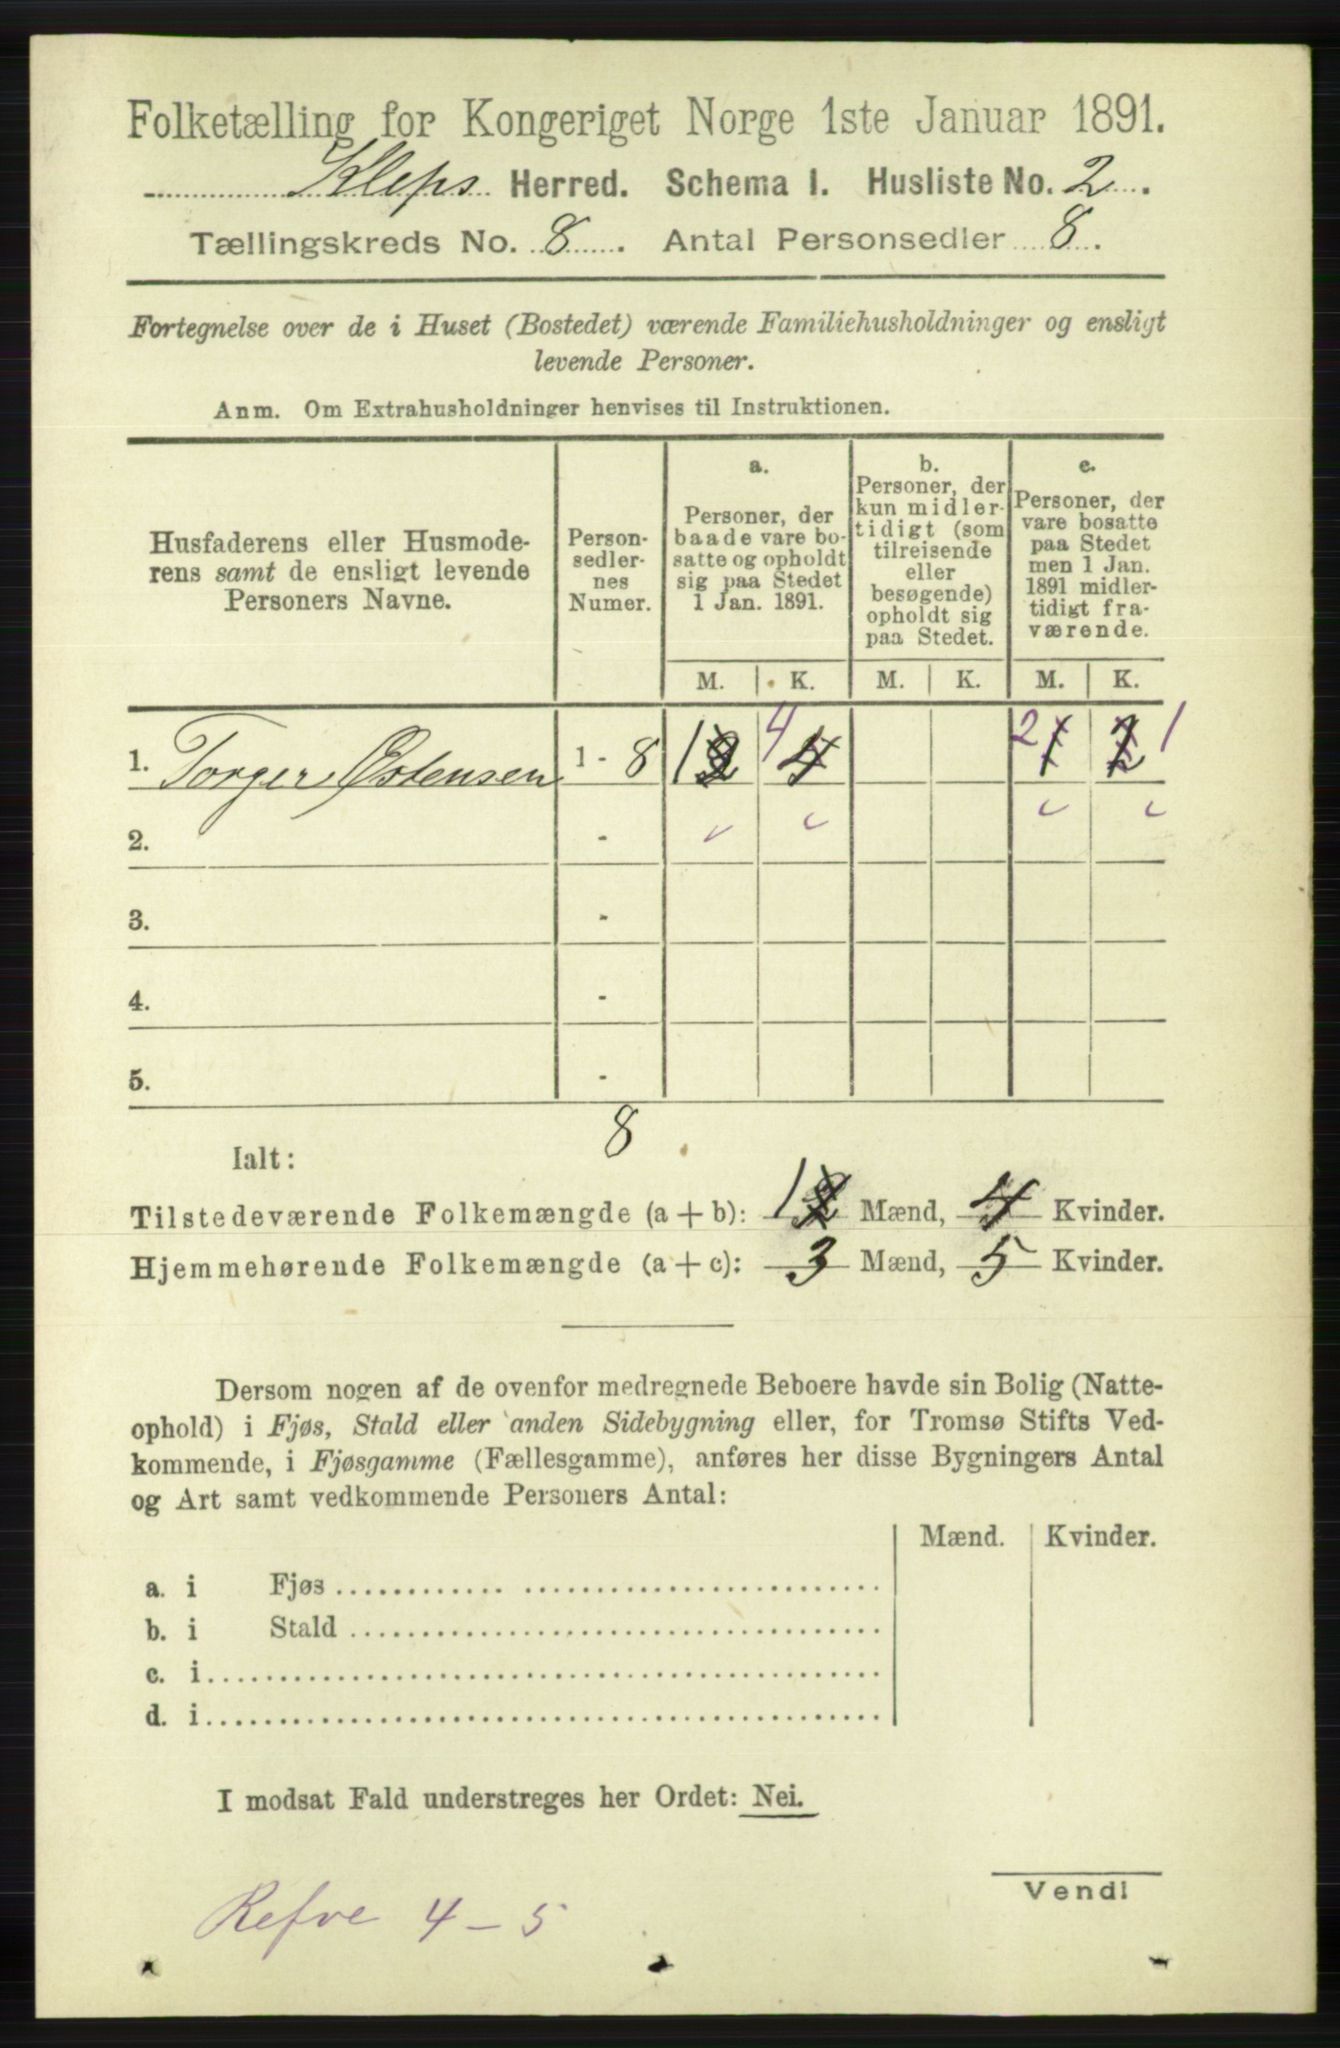 Folketælling for Kongeriget Norge 1ste Januar 1891.
Kleps Herred. Schema I. Husliste No. 2.
Tællingskreds No. 8. Antal Personsedler 8.
Fortegnelse over de i Huset (Bostedet) værende Familiehusholdninger og ensligt
levende Personer.
Anm. Om Extrahusholdninger henvises til Instruktionen.
Husfaderens eller Husmode-
rens samt de ensligt levende
Personers Navne.
Person-
sedler-
nes
Numer.
a.
Personer, der
baade vare bo-
satte og opholdt
sig paa Stedet
1 Jan. 1891.
b.
Personer, der
kun midler-
tidigt (som
tilreisende
eller
besøgende)
opholdt sig
paa Stedet.
c.
Personer, der
vare bosatte
paa Stedet
men 1 Jan.
1891 midler-
tidigt fra-
værende.
M. K. M. K. M. K.
1. Torger Østensen 1 - 8 1 2 4 4 2 1 2 1
2. -
3. -
4. -
5. -
8
Ialt:
Tilstedeværende Folkemængde (a + b): 1 2 Mænd, 4 Kvinder.
Hjemmehørende Folkemængde (a + c): 3 Mænd, 5 Kvinder.
Dersom nogen af de ovenfor medregnede Beboere havde sin Bolig (Natte-
ophold) i Fjøs, Stald eller anden Sidebygning eller, for Tromsø Stifts Ved-
kommende, i Fjøsgamme (Fællesgamme), anføres her disse Bygningers Antal
og Art samt vedkommende Personers Antal:
Mænd. Kvinder.
a. i Fjøs
b. i Stald
c. i
d. i
I modsat Fald understreges her Ordet: Nei.
Vend!
Refve 4 - 5